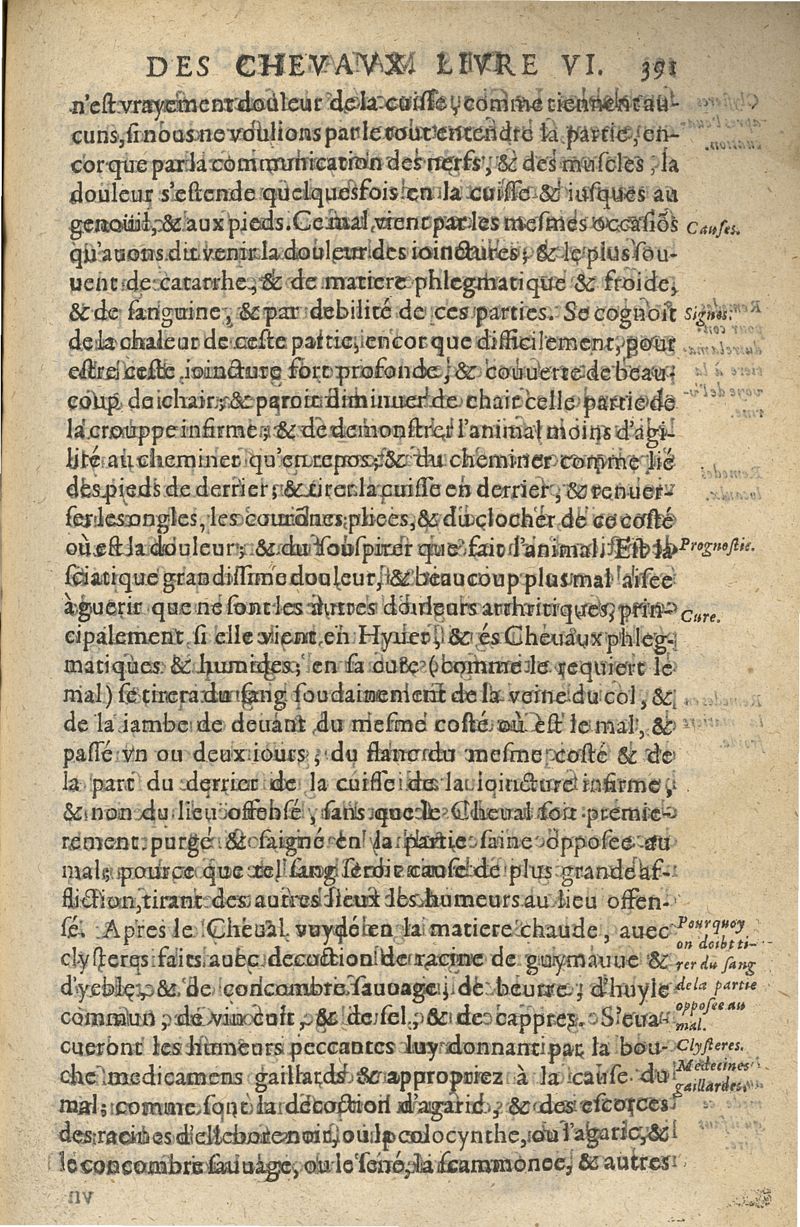 DES CHEVAUX LIVRE VI. 391
n'est vrayement douleur de la cuisse, comme tiennent au-
cuns, si nous ne voulions par le tout entendre la partie, en-
cor que par la communication des nerfs, & des muscles, la
douleur s'estende quelquesfois en la cuisse & iusques au
genouil, & aux pieds. Ce mal vient par les mesmes occasiõs
Causes.
qu'auons dit venir la douleur des ioinctures, & le plus sou-
uent de catarrhe, & de matiere phlegmatique & froide,
& de sanguine, & par debilité de ces parties. Se cognoit
Signes.
de la chaleur de ceste partie, encor que difficilement, pour
estre ceste ioincture fort profonde, & couuerte de beau-
coup de chair, & paroit diminuer de chair celle partie de
la crouppe infirme, & de demonstrer l'animal moins d'agi-
lité au cheminer qu'en repos, & du cheminer comme lié
des pieds de derrier, & tirer la cuisse en derrier, & renuer-
ser les ongles, les couronnes pliees, & du clocher de ce costé
où est la douleur, & du souspirer que fait l'animal. Est la
Prognostic.
sciatique grandissime douleur, & beaucoup plus mal aisee
à guerir que ne sont les autres douleurs arthritiques, prin-
Cure.
cipalement si elle vient en Hyuer, & és Cheuaux phleg-
matiques & humides, en sa cure (comme le requiert le
mal) se tirera du sang soudainement de la veine du col, &
de la iambe de deuant du mesme costé où est le mal, &
passé vn ou deux iours, du flanc du mesme costé & de
la part du derrier de la cuisse de la ioincture infirme,
& non du lieu offensé, sans que le Cheual soit premie-
rement purgé & saigné en la partie saine opposee au
mal, pource que tel sang seroit cause de plus grande af-
fliction, tirant des autres lieux les humeurs au lieu offen-
sé. Apres le Cheual vuydé en la matiere chaude, auec
Pourquoy
on doibt ti-
clysteres faits auec decoction de racine de guymauue &
rer du sang
d'yeble, & de concombre sauuage, de beurre, d'huyle
de la partie
opposee au
commun, de vin cuit, & de sel, & de cappres. S'eua-
mal.
cueront les humeurs peccantes luy donnant par la bou-
Clysteres.
che medicamens gaillards & appropriez à la cause du
Medecines
gaillardes.
mal, comme sont la decoction d'agaric, & des escorces
des racines d'ellebore noir, ou le colocynthe, ou l'agaric, &
le concombre sauuage, ou le sené, la scammonee, & autres